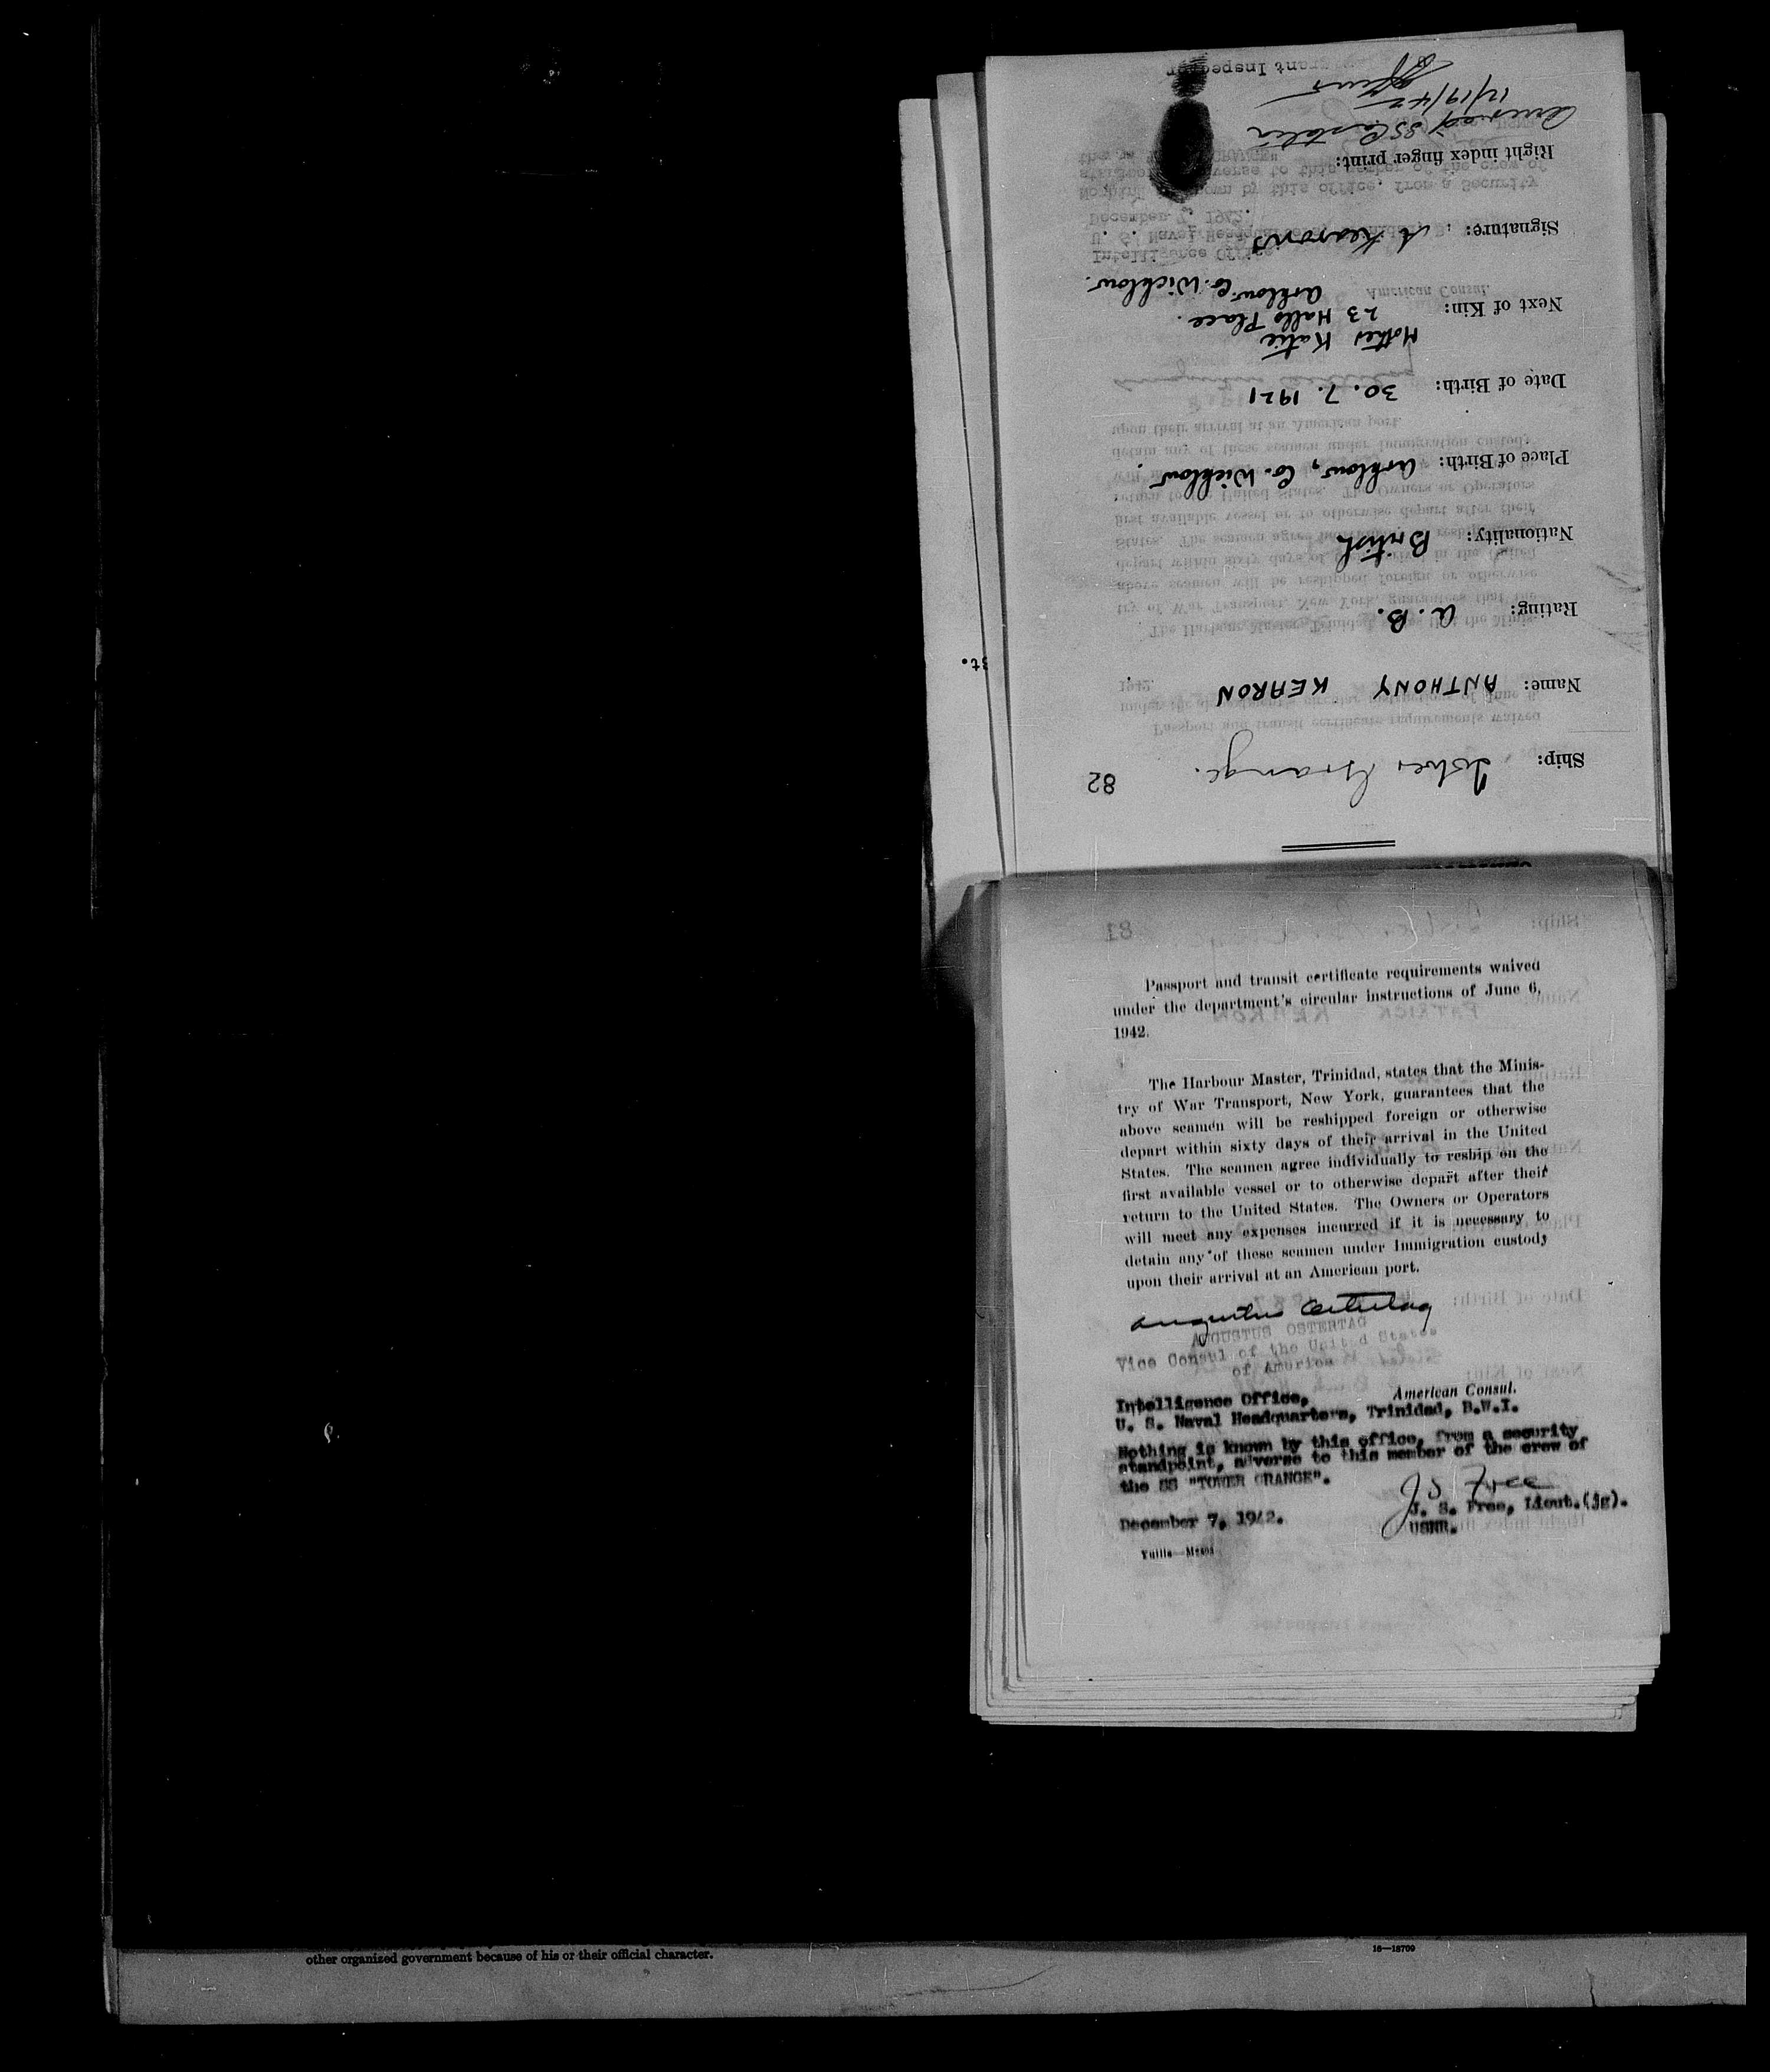 82
Ship: Tower Grange.
Name: ANTHONY KEARON
Rating: A.B.
Nationality: British
Place of Birth: Arklow, Co. Wicklow.
Date of Birth: 30.7.1921
Next of Kin: Mother Katie
23 Halls Place.
Arklow. Co. Wicklow.
Signature: A Kearons
Right index finger print:
Arrived SS Castalia
12/19/42
Immigrant Inspector
st.
81
Passport and transit certificate requirements waived
under the department's circular instructions of June 6,
1942.
The Harbour Master, Trinidad, states that the Minis-
try of War Transport, New York, guarantees that the
above seamen will be reshipped foreign or otherwise
depart within sixty days of their arrival in the United
States. The seamen agree individually to reship on the
first available vessel or to otherwise depart after their
return to the United States. The Owners or Operators
will meet any expenses incurred if it is necessary to
detain any of these seamen under Immigration custody
upon their arrival at an American port.
Augustus Ostertag
AUGUSTUS OSTERTAG
Vice Consul of the United States
of America
American Consul.
Intelligence Office,
U. S. Naval Headquarters, Trinidad, B.W.I.
Nothing is known by this office, from a security
standpoint, adverse to this member of the crew of
the SS "TOWER GRANGE".
J S Free
J. S. Free, Lieut.(jg).
USNR.
December 7, 1942.
Yuille—
other organized government because of his or their official character.
16—18709